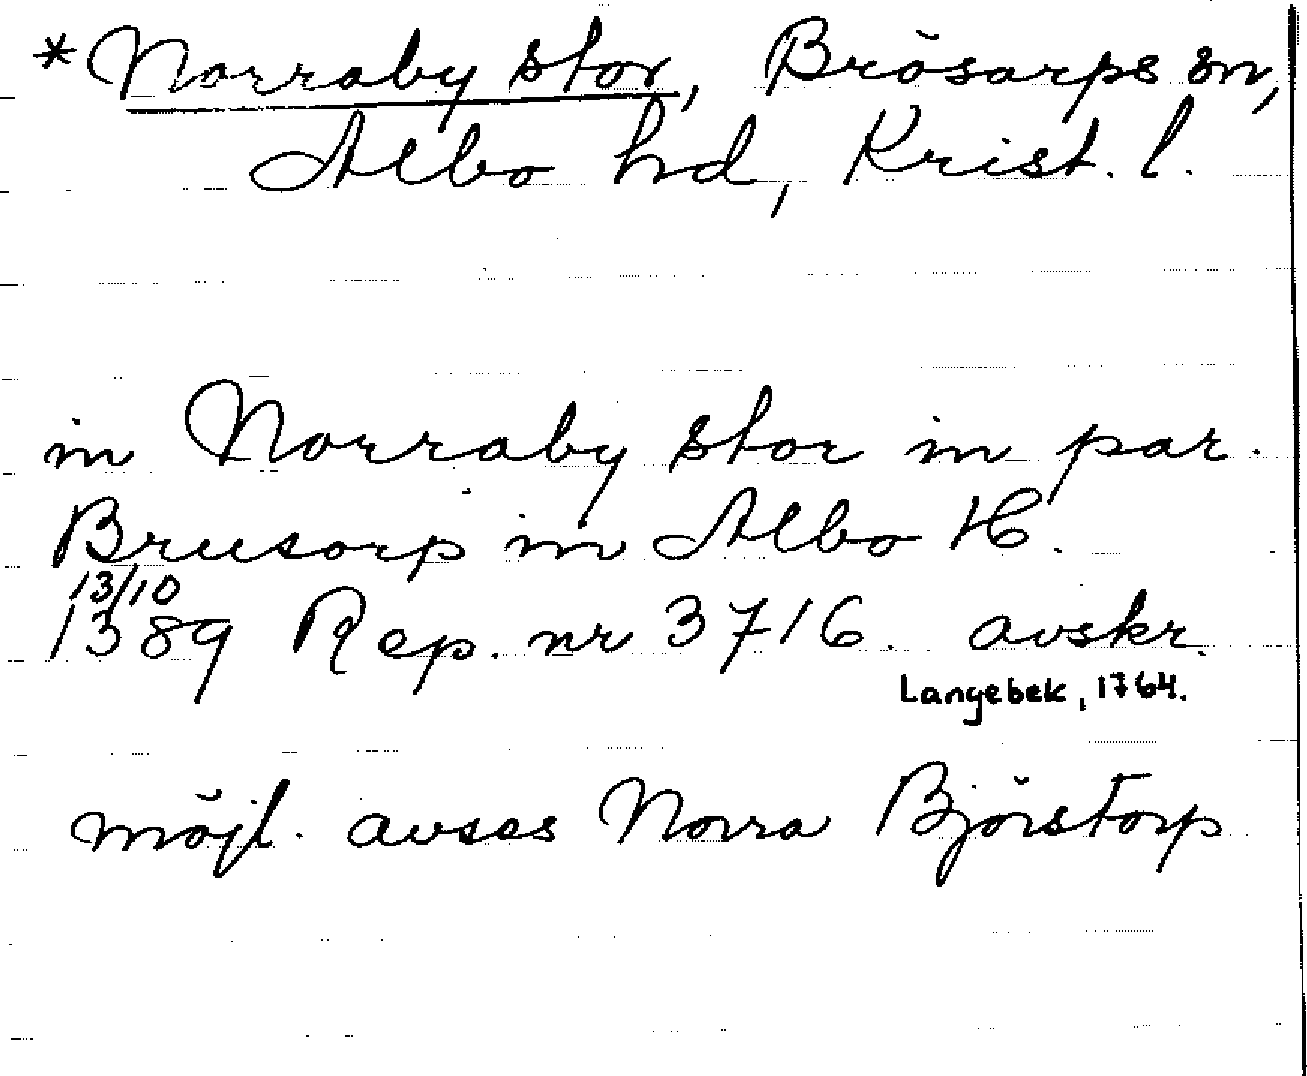 *Norraby stor, Brösarps sn,
Albo hd, Krist. l.
in Norraby stor in par.
Brusorp in Albo H.
13/10
1389 Rep. nr 3716. avskr.
Langebek, 1764.
möjl. avses Norra Björstorp